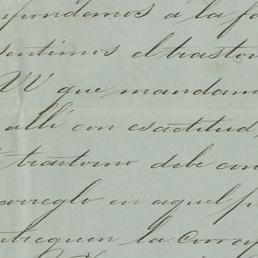 spondemos á la fa
sentimos el trastor
W que mandam
allí con esactitud,
trastorno debe con
arreglo en aquel p
ntreguen la Corres